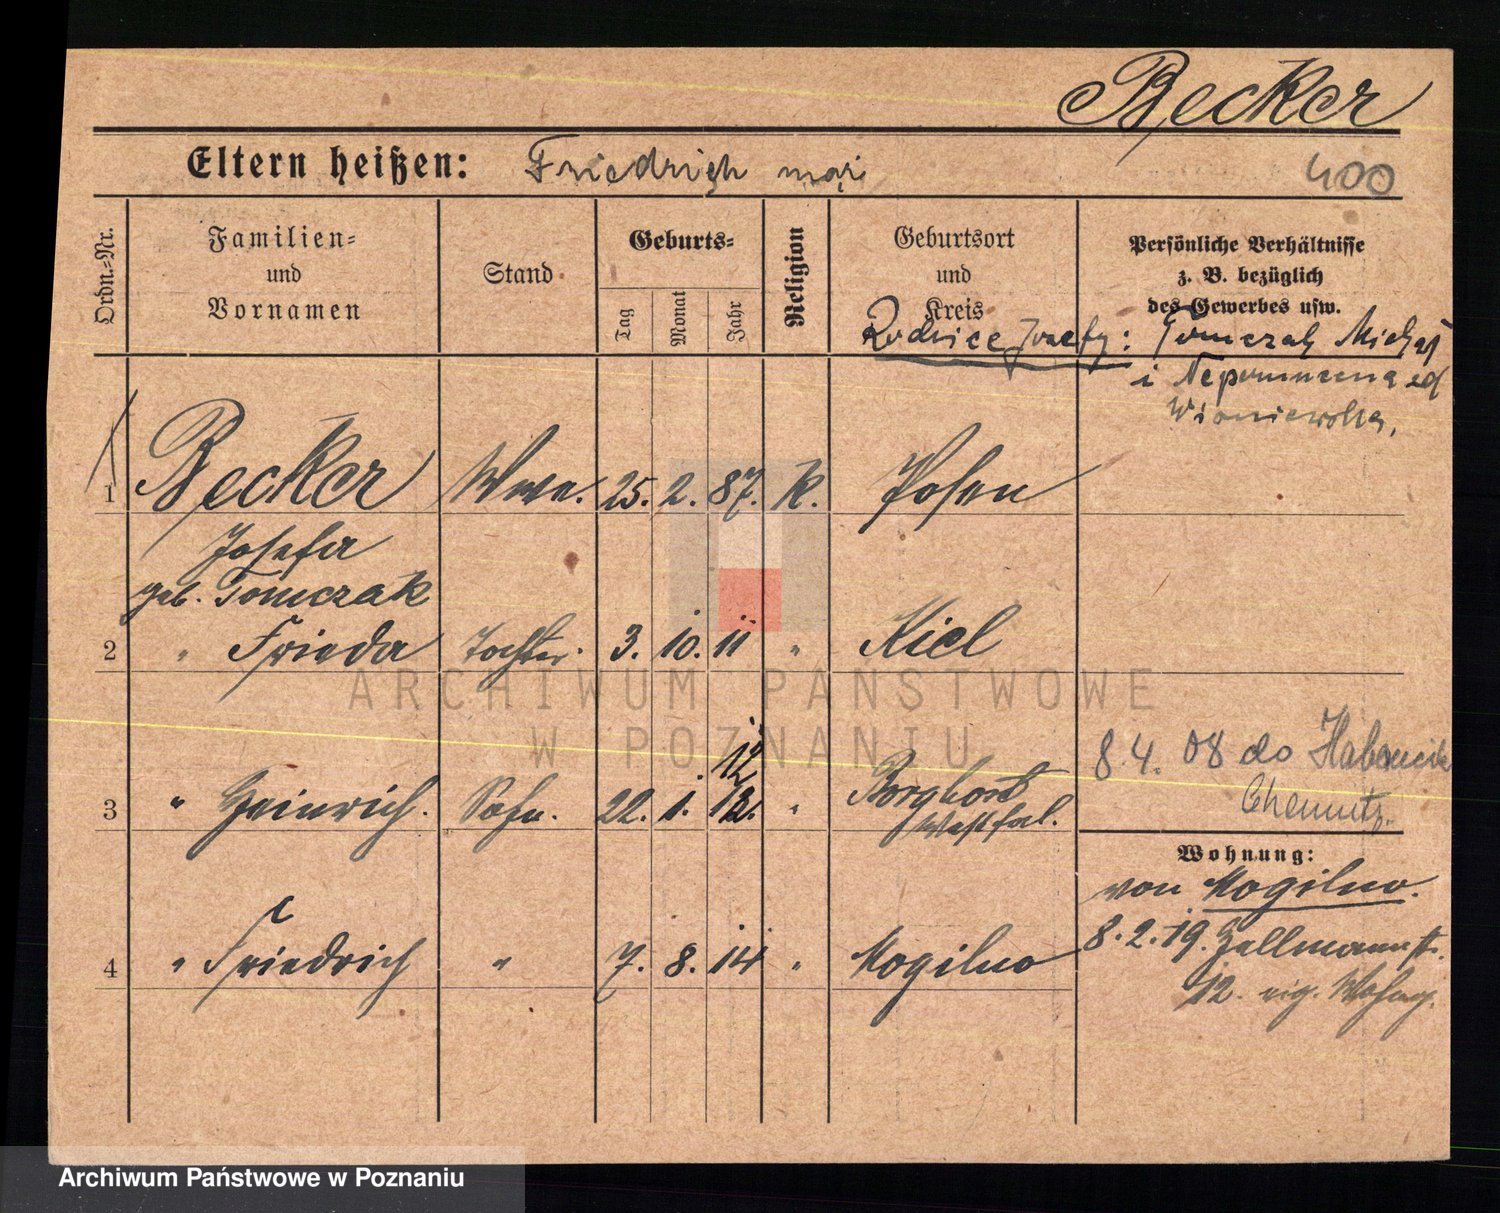 Becker
Eltern heißen: Friedrich
400
Ordn.-Nr.
Familien-
und
Vornamen
Stand
Geburts-
Tag
Monat
Jahr
Religion
Geburtsort
und
Kreis
Persönliche Verhältnisse
z. B. bezüglich
des Gewerbes usw.
Rodzice Józefy: Tomczak Michał
i Nepomucena
1 Becker Wwe. 25. 2. 87. K. Posen
Josefa
geb. Tomczak
2 " Frieda Tochter. 3. 10. 11 " Kiel
3 " Heinrich. Sohn. 22. 1. 12 " Borghorst
Westfal.
8.4. 08 do
Chemnitz.
Wohnung:
von Mogilno.
4 " Friedrich " 7. 8. 14 " Mogilno
8.2.19.
12. eig. Wohng.
ARCHIWUM PAŃSTWOWE
W POZNANIU
Archiwum Państwowe w Poznaniu